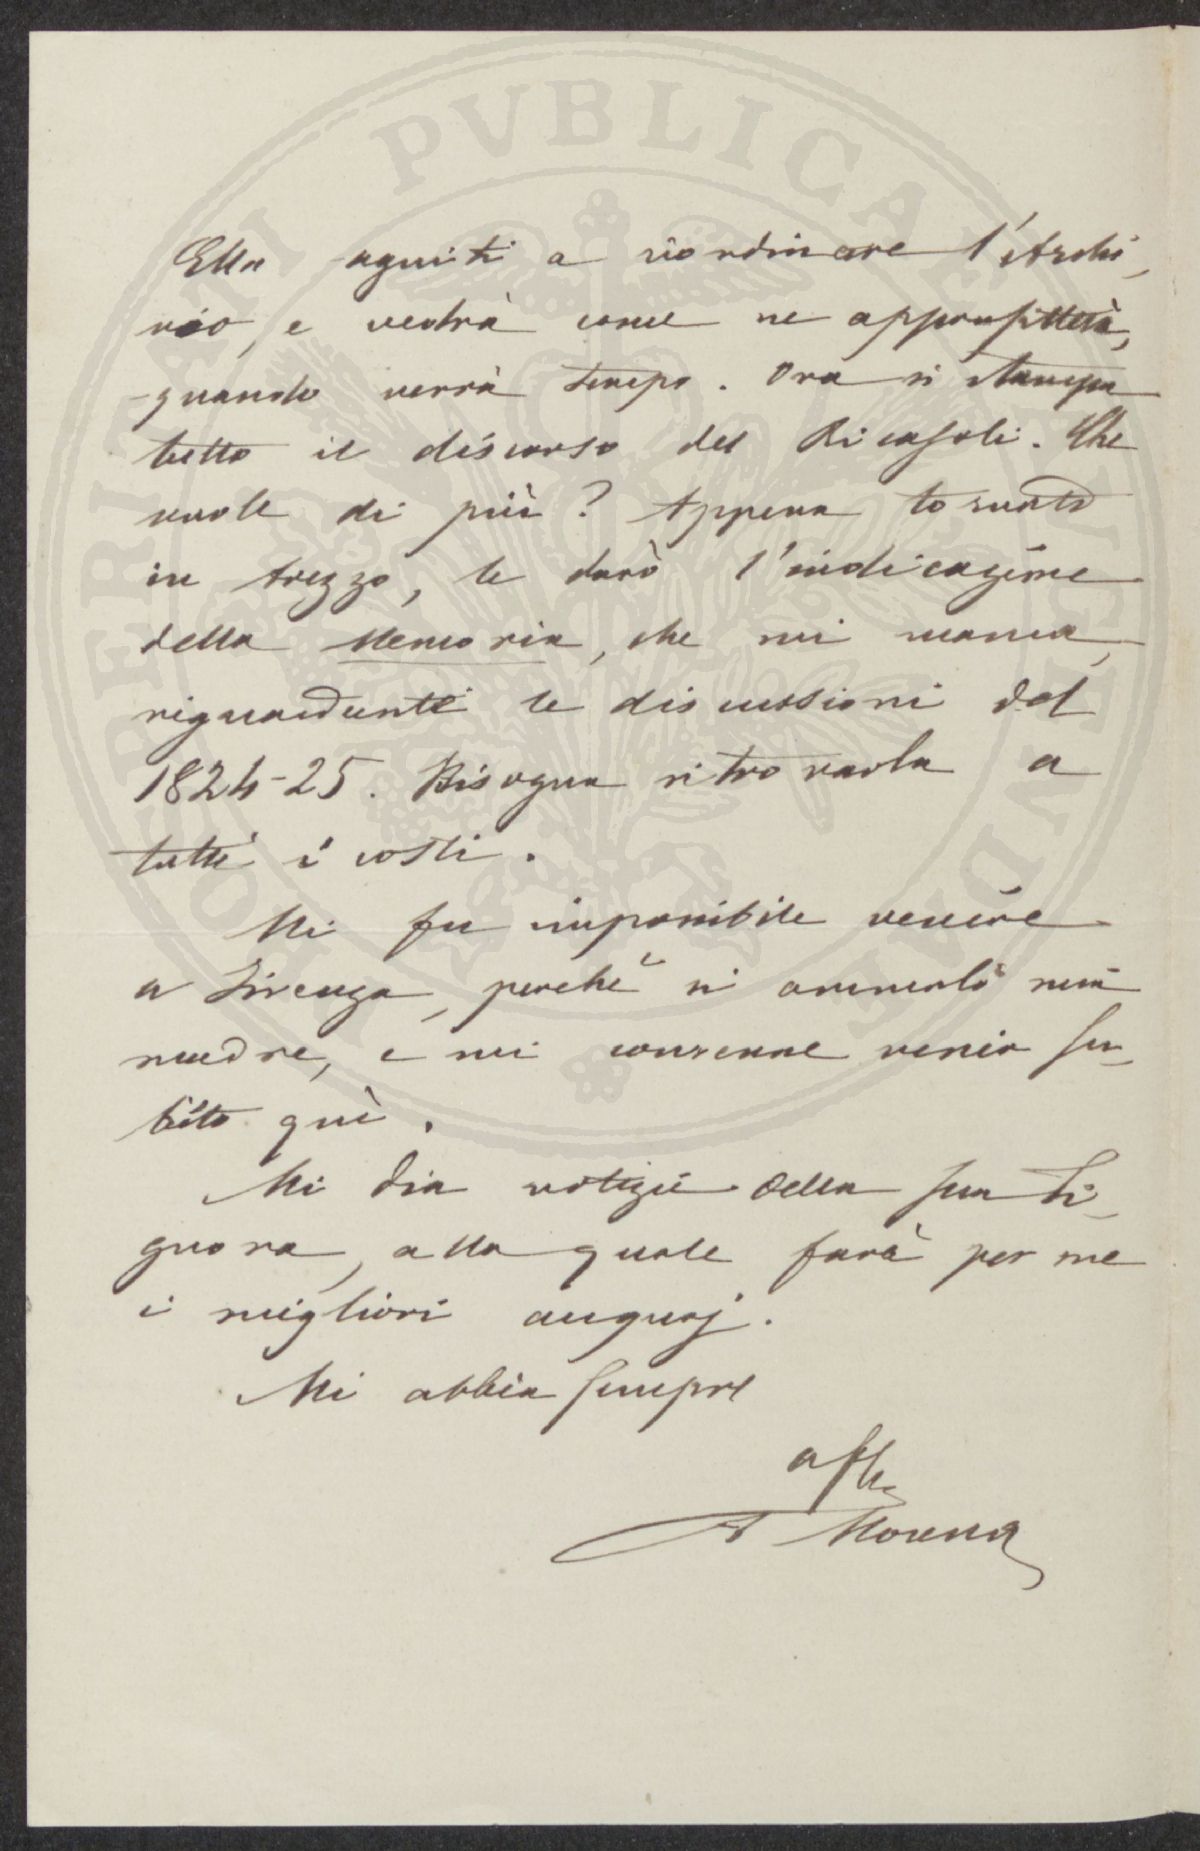 Ella seguiti a riordinare l'Archi-
vio, e vedrà come ne approfitterà,
quando verrà tempo. Ora si stampa
tutto il discorso del Ricasoli. Che
vuole di più? Appena tornato
in Arezzo, le darò l'indicazione
della Memoria, che mi manca,
riguardante le discussioni del
1824-25. Bisogna ritrovarla a
tutti i costi.
Mi fu impossibile venire
a Firenze, perchè si ammalò mia
madre, e mi convenne venir su-
bito quì.
Mi dia notizie della sua Si-
gnora, alla quale farà per me
i migliori augurj.
Mi abbia sempre
aff